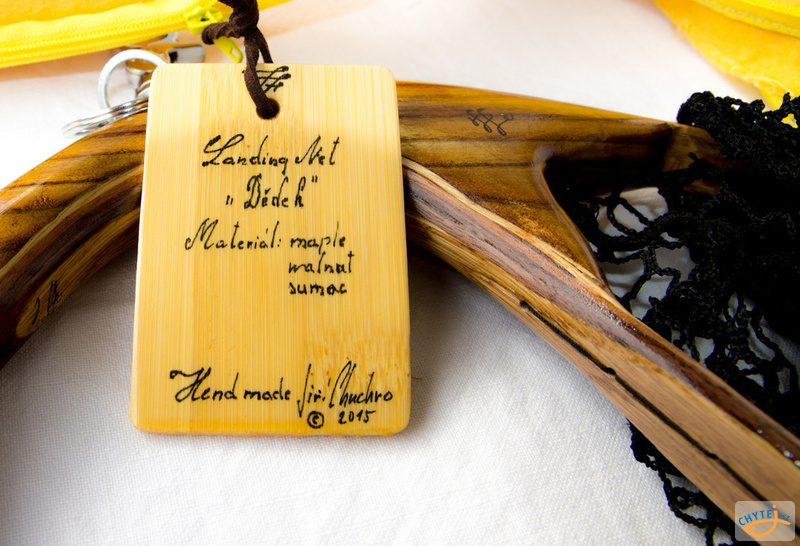 Landing Net
„Dědek"
Materiál: maple
walnut
sumac
Hend made Jiří Chuchro
© 2015
CHYTEJ